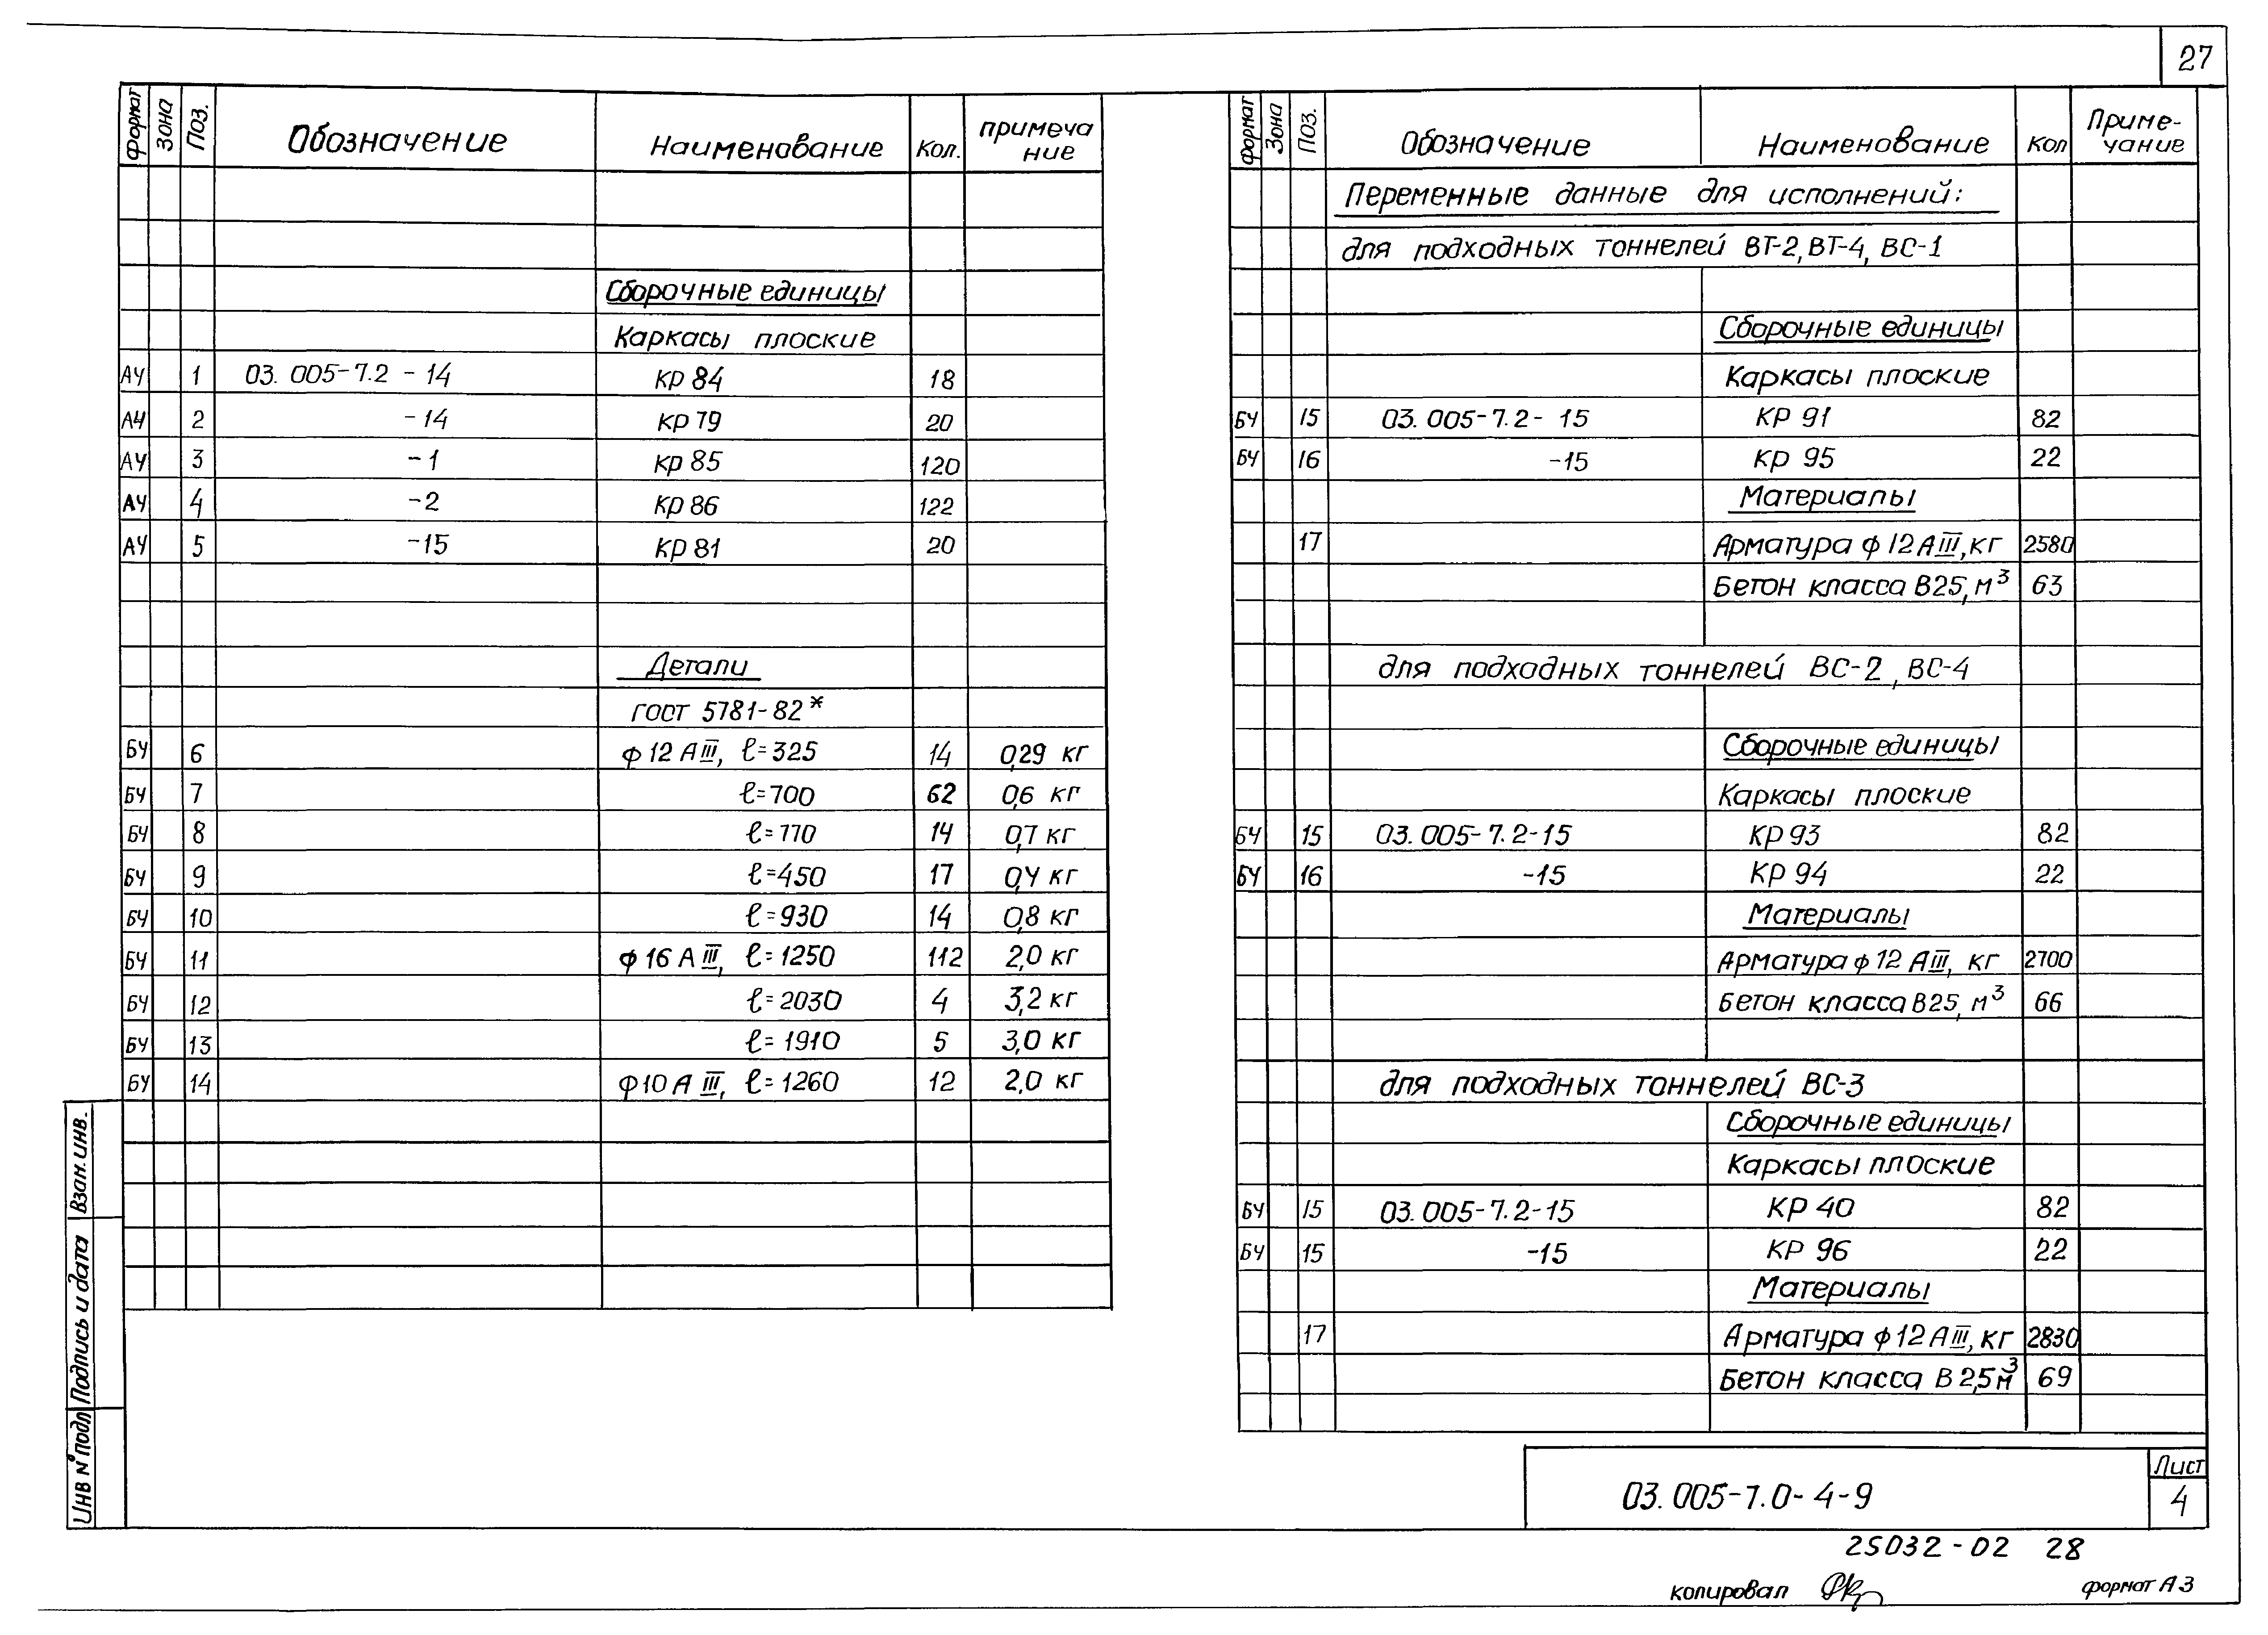 27
Формат Зона Поз. Обозначение Наименование Кол. Примечание
Сборочные единицы
Каркасы плоские
АЧ 1 03.005-7.2-14 КР 84 18
АЧ 2 -14 КР 79 20
АЧ 3 -1 КР 85 120
АЧ 4 -2 КР 86 122
АЧ 5 -15 КР 81 20
Детали
ГОСТ 5781-82*
БЧ 6 ф12 АIII, ℓ=325 14 0,29 кг
БЧ 7 ℓ=700 62 0,6 кг
БЧ 8 ℓ=770 14 0,7 кг
БЧ 9 ℓ=450 17 0,4 кг
БЧ 10 ℓ=930 14 0,8 кг
БЧ 11 ф16 АIII, ℓ=1250 112 2,0 кг
БЧ 12 ℓ=2030 4 3,2 кг
БЧ 13 ℓ=1910 5 3,0 кг
БЧ 14 ф10 АIII, ℓ=1260 12 2,0 кг
Формат Зона Поз. Обозначение Наименование Кол Приме-
чание
Переменные данные для исполнений:
для подходных тоннелей ВТ-2, ВТ-4, ВС-1
Сборочные единицы
Каркасы плоские
БЧ 15 03.005-7.2-15 КР 91 82
БЧ 16 -15 КР 95 22
Материалы
17 Арматура ф12 АIII, кг 2580
Бетон класса В25, м³ 63
для подходных тоннелей ВС-2, ВС-4
Сборочные единицы
Каркасы плоские
БЧ 15 03.005-7.2-15 КР 93 82
БЧ 16 -15 КР 94 22
Материалы
Арматура ф12 АIII, кг 2700
Бетон класса В25, м³ 66
для подходных тоннелей ВС-3
Сборочные единицы
Каркасы плоские
БЧ 15 03.005-7.2-15 КР 40 82
БЧ 15 -15 КР 96 22
Материалы
17 Арматура ф12 АIII, кг 2830
Бетон класса В 2,5 м³ 69
Взан. инв.
Подпись и дата
Инв № подл
03.005-7.0-4-9
Лист
4
25032-02 28
копировал
формат А3